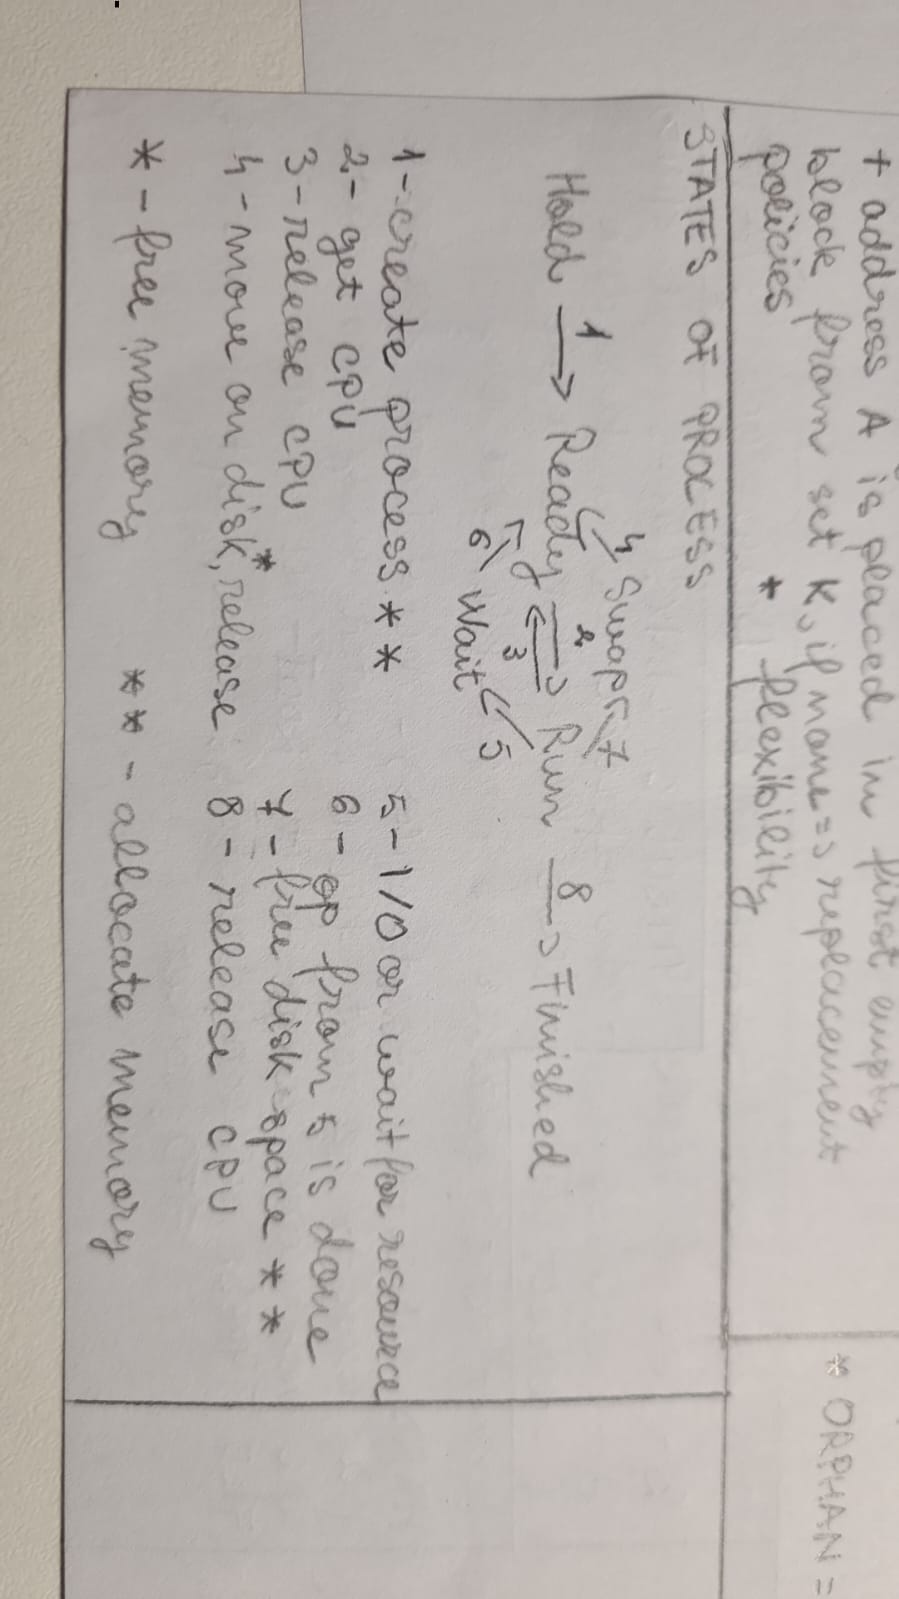 + address A is placed in first empty
block from set K, if none => replacement
policies * flexibility
* ORPHAN =
STATES OF PROCESS
4 Swap 7
Hold 1 → Ready 2 → Run 8 → Finished
3
6 Wait 5
1 - create process **
2 - get CPU
3 - release CPU
4 - move on disk*, release
5 - I/O or wait for resource
6 - op from 5 is done
7 - free disk space **
8 - release CPU
* - free memory ** - allocate memory